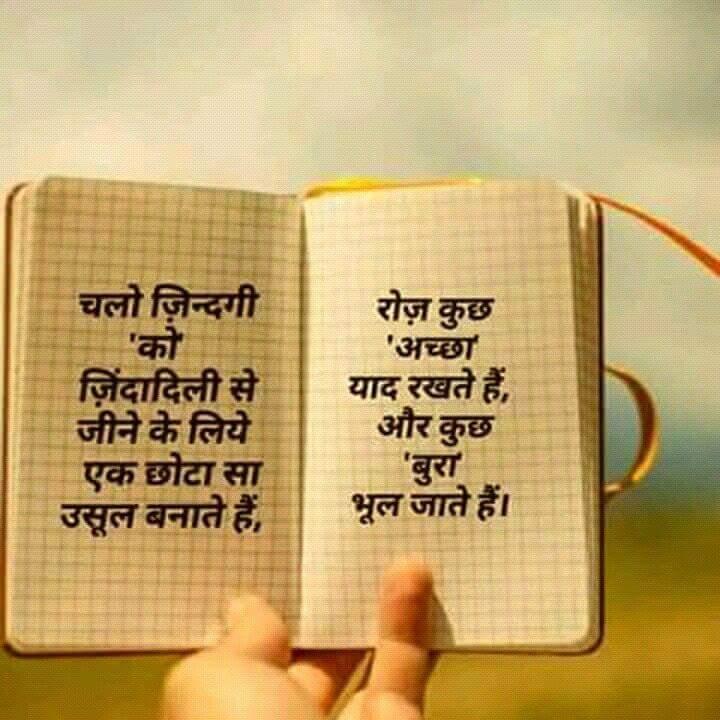 चलो ज़िन्दगी
'को'
ज़िंदादिली से
जीने के लिये
एक छोटा सा
उसूल बनाते हैं,
रोज़ कुछ
'अच्छा'
याद रखते हैं,
और कुछ
'बुरा'
भूल जाते हैं।